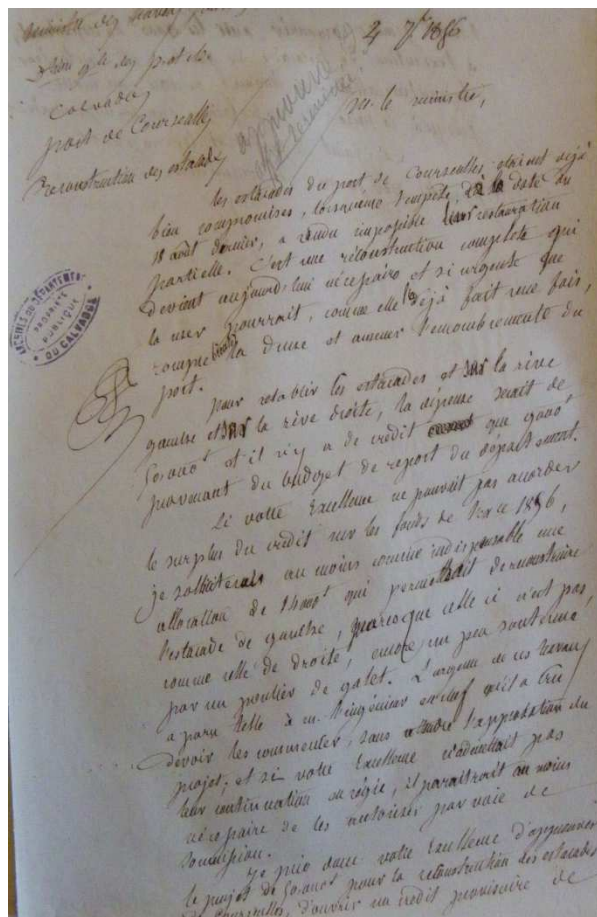 ministère des travaux
2 7bre 1856
Calvados
port de Courseulles
Reconstruction des estacades
M. le ministre,
les estacades du port de Courseulles étaient déjà
bien compromises, lorsque la tempête, à la date du
18 août dernier, a rendu impossible leur restauration
partielle. C'est une réconstruction complete qui
devient aujourd'hui nécessaire et si urgente que
la mer pourrait, comme elle l'a déjà fait une fois,
rompre la dune et amener l'encombrement du
port.
ARCHIVES DU DÉPARTEMENT
PROPRIÉTÉ
PUBLIQUE
DU CALVADOS
pour rétablir les estacades et sur la rive
gauche et sur la rive droite, la dépense serait de
et il n'y a de crédit que
provenant du budget de report du département.
Si votre Excellence ne pouvait pas accorder
le surplus du crédit sur les fonds de 1856,
je solliciterais au moins comme indispensable une
allocation de qui permettrait de reconstruire
l'estacade de gauche, parceque celle ci n'est pas,
comme celle de droite, encore un peu soutenue
par un poulier de galet. L'urgence de ces travaux
a paru telle à M. l'ingénieur en chef qu'il a cru
devoir les commencer, sans l'approbation du
projet, et si votre Excellence n'admettait pas
leur continuation en régie, il paraîtrait au moins
nécessaire de les autoriser par voie de
soumission.
Je prie donc votre Excellence d'approuver
le projet de pour la reconstruction des estacades
de Courseulles, d'ouvrir un crédit provisoire de